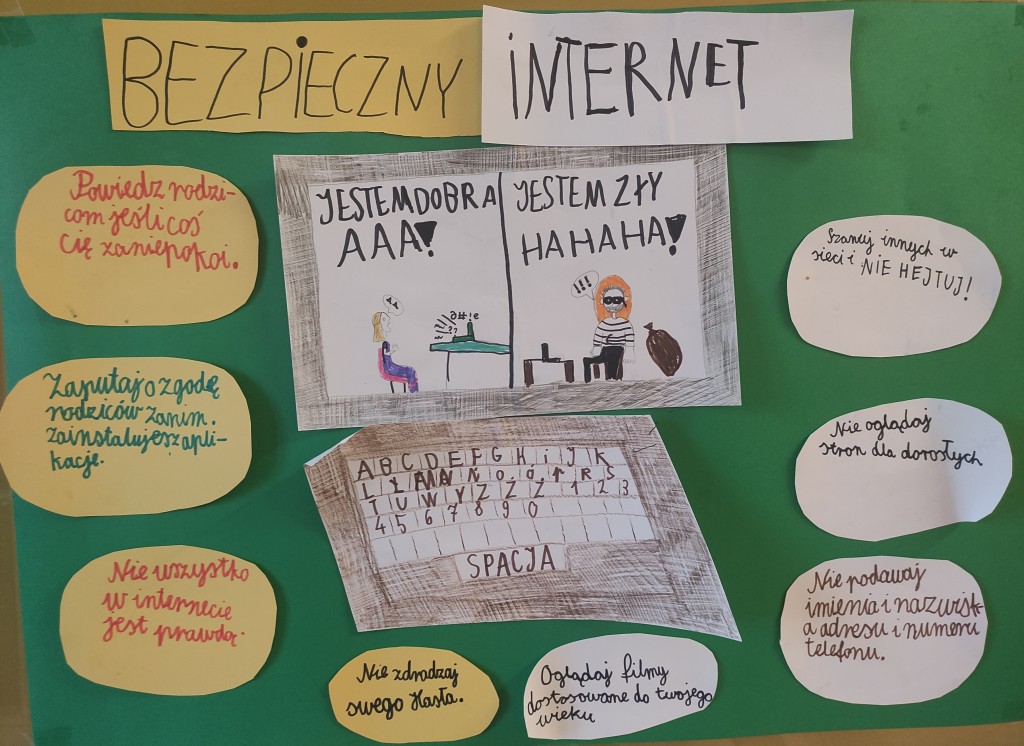 BEZPIECZNY INTERNET
Powiedz rodzi-
com jeśli coś
cię zaniepokoi.
Zapytaj o zgodę
rodziców zanim.
zainstalujesz apli-
kację.
Nie wszystko
w internecie
jest prawdą.
JESTEM DOBRA
AAA!
JESTEM ZŁY
HAHAHA!
!!!
A B C D E F G H i J K
L Ł M N Ń O Ó P R S
T U W Y Z Ź Ż 1 2 3
4 5 6 7 8 9 0
SPACJA
Nie zdradzaj
swego Hasła.
Oglądaj filmy
dostosowane do twojego
wieku
Szanuj innych w
sieci i NIE HEJTUJ!
Nie oglądaj
stron dla dorosłych
Nie podawaj
imienia i nazwisk-
a adresu i numeru
telefonu.